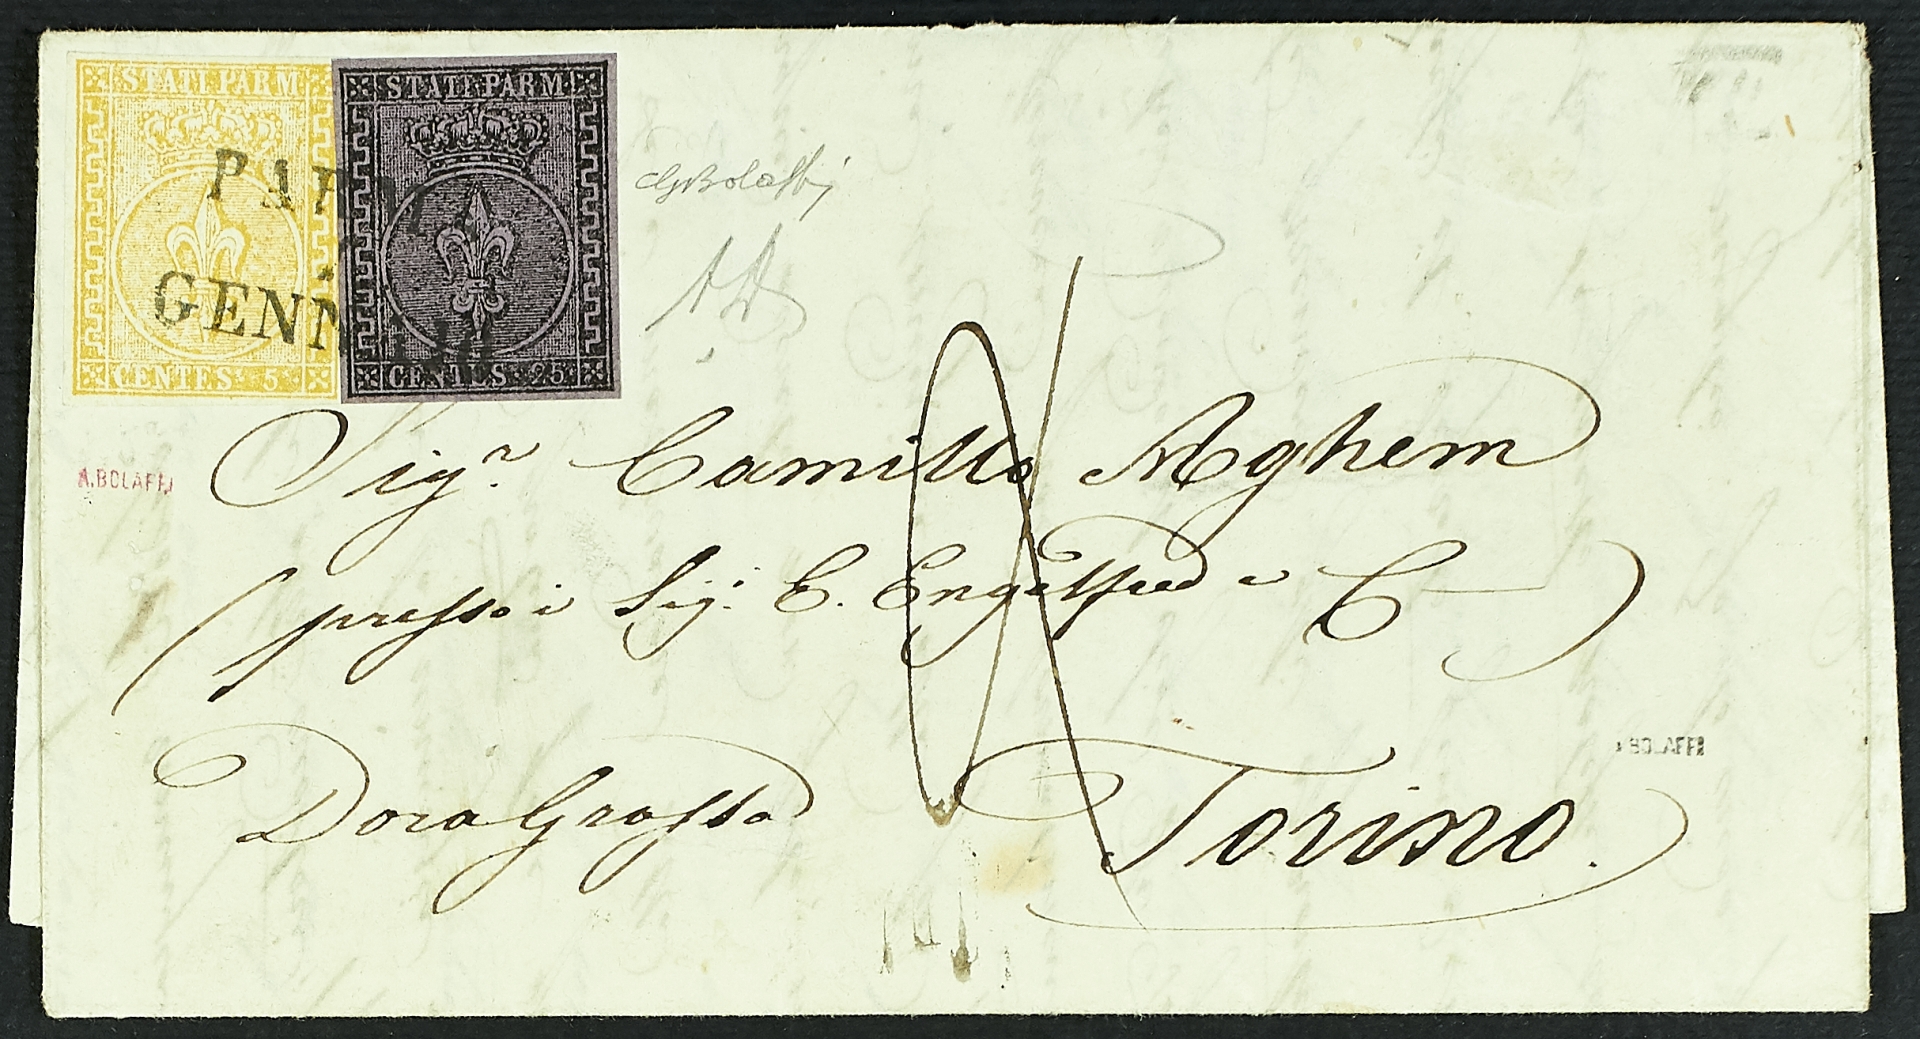 STATI PARM.
CENTES. 5
STATI PARM.
CENTES. 25
PARMA
GENN
GBolaffi
AD
A.BOLAFFI
Sig.r Camillo Aghem
(presso i Sig.i C. Engelfred e C)
Dora Grossa
Torino.
A BOLAFFI